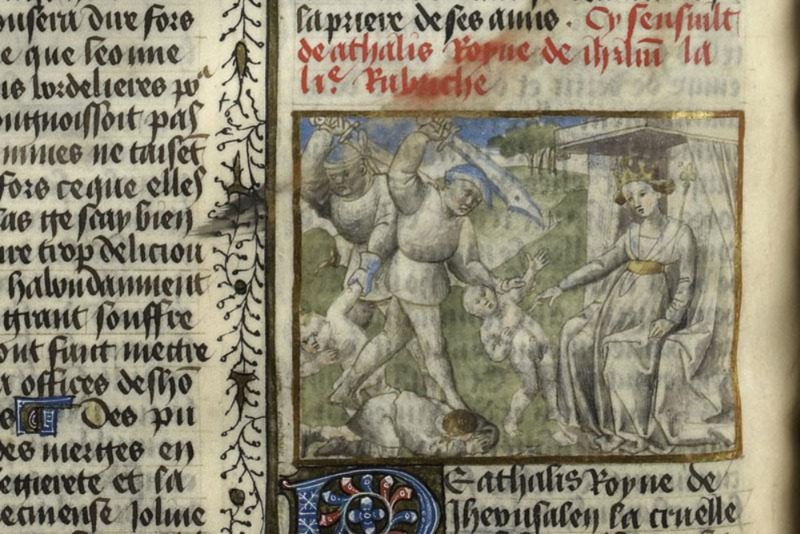 ousera dire fors
e que leonne
is cordelieres po
ongnoissoit pas
mmes ne taiset
fors ce que elles
cas ge scay bien
ure trop deliciou
habundanment
grant souffre
ont faut mectre
offices desho
Des pu
des vierges en
et la
Joliue
la priere de ses amis. Cy sensuilt
de athalis Royne de ihrlm la
lie Rubriche
Eathalis Royne de
Iherusalem la cruelle